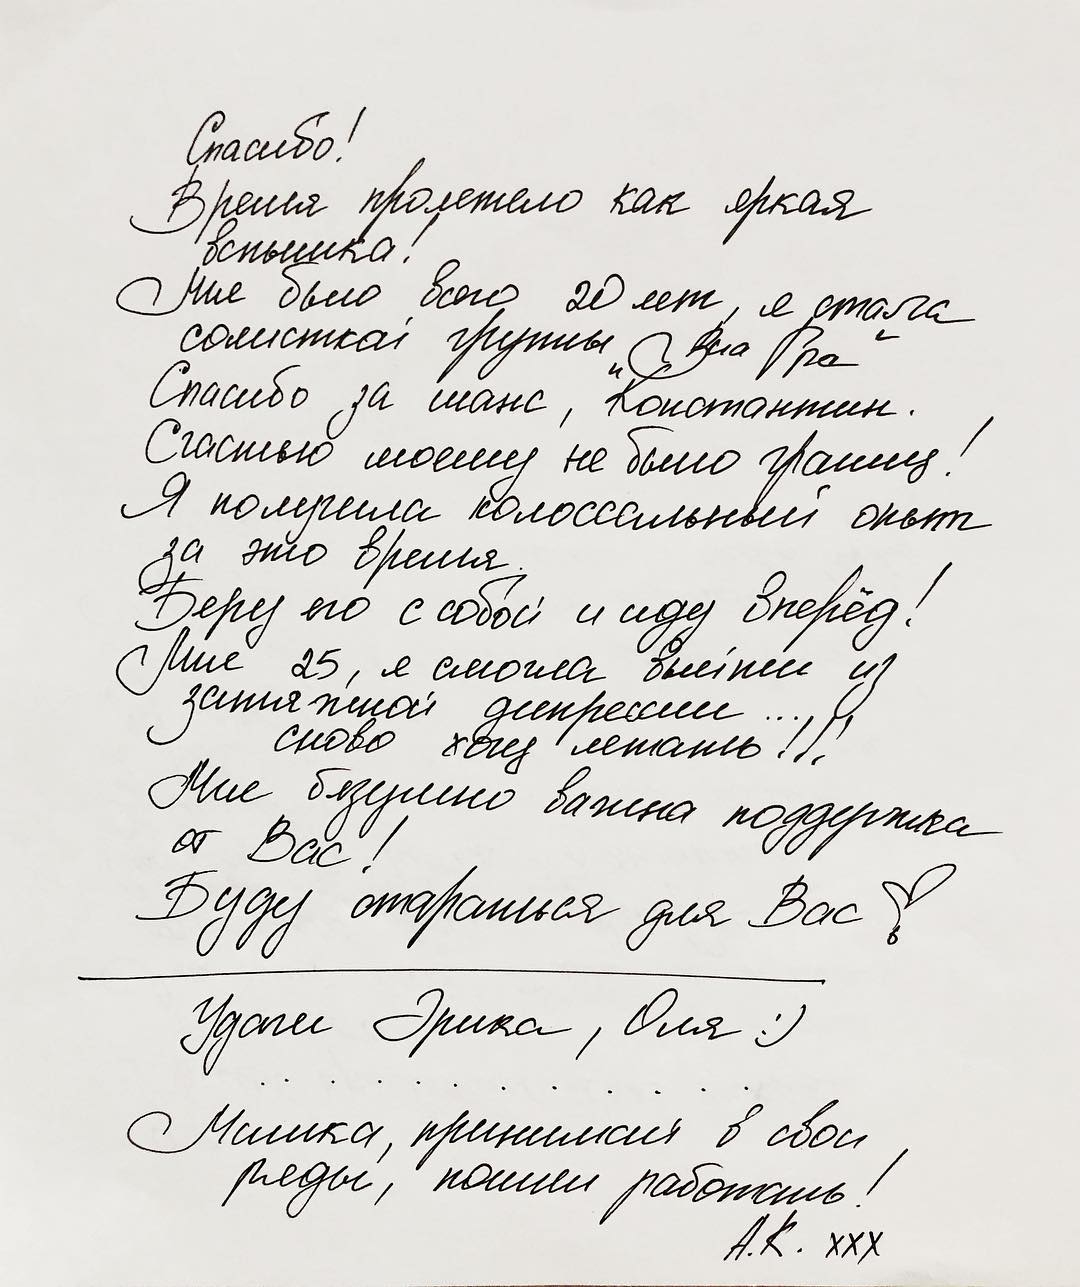 Спасибо!
Время пролетело как яркая
вспышка!
Мне было всего 20 лет, я стала
солисткой группы „Виа Гра"
Спасибо за шанс, Константин.
Счастью моему не было границ!
Я получила колоссальный опыт
за это время.
Беру его с собой и иду вперёд!
Мне 25, я смогла выйти из
затяжной депрессии...
снова хочу летать!!!
Мне безумно важна поддержка
от Вас!
Буду стараться для Вас
Удачи Эрика, Оля :)
Мишка, принимай в свои
ряды, пошли работать!
А.К. xxx